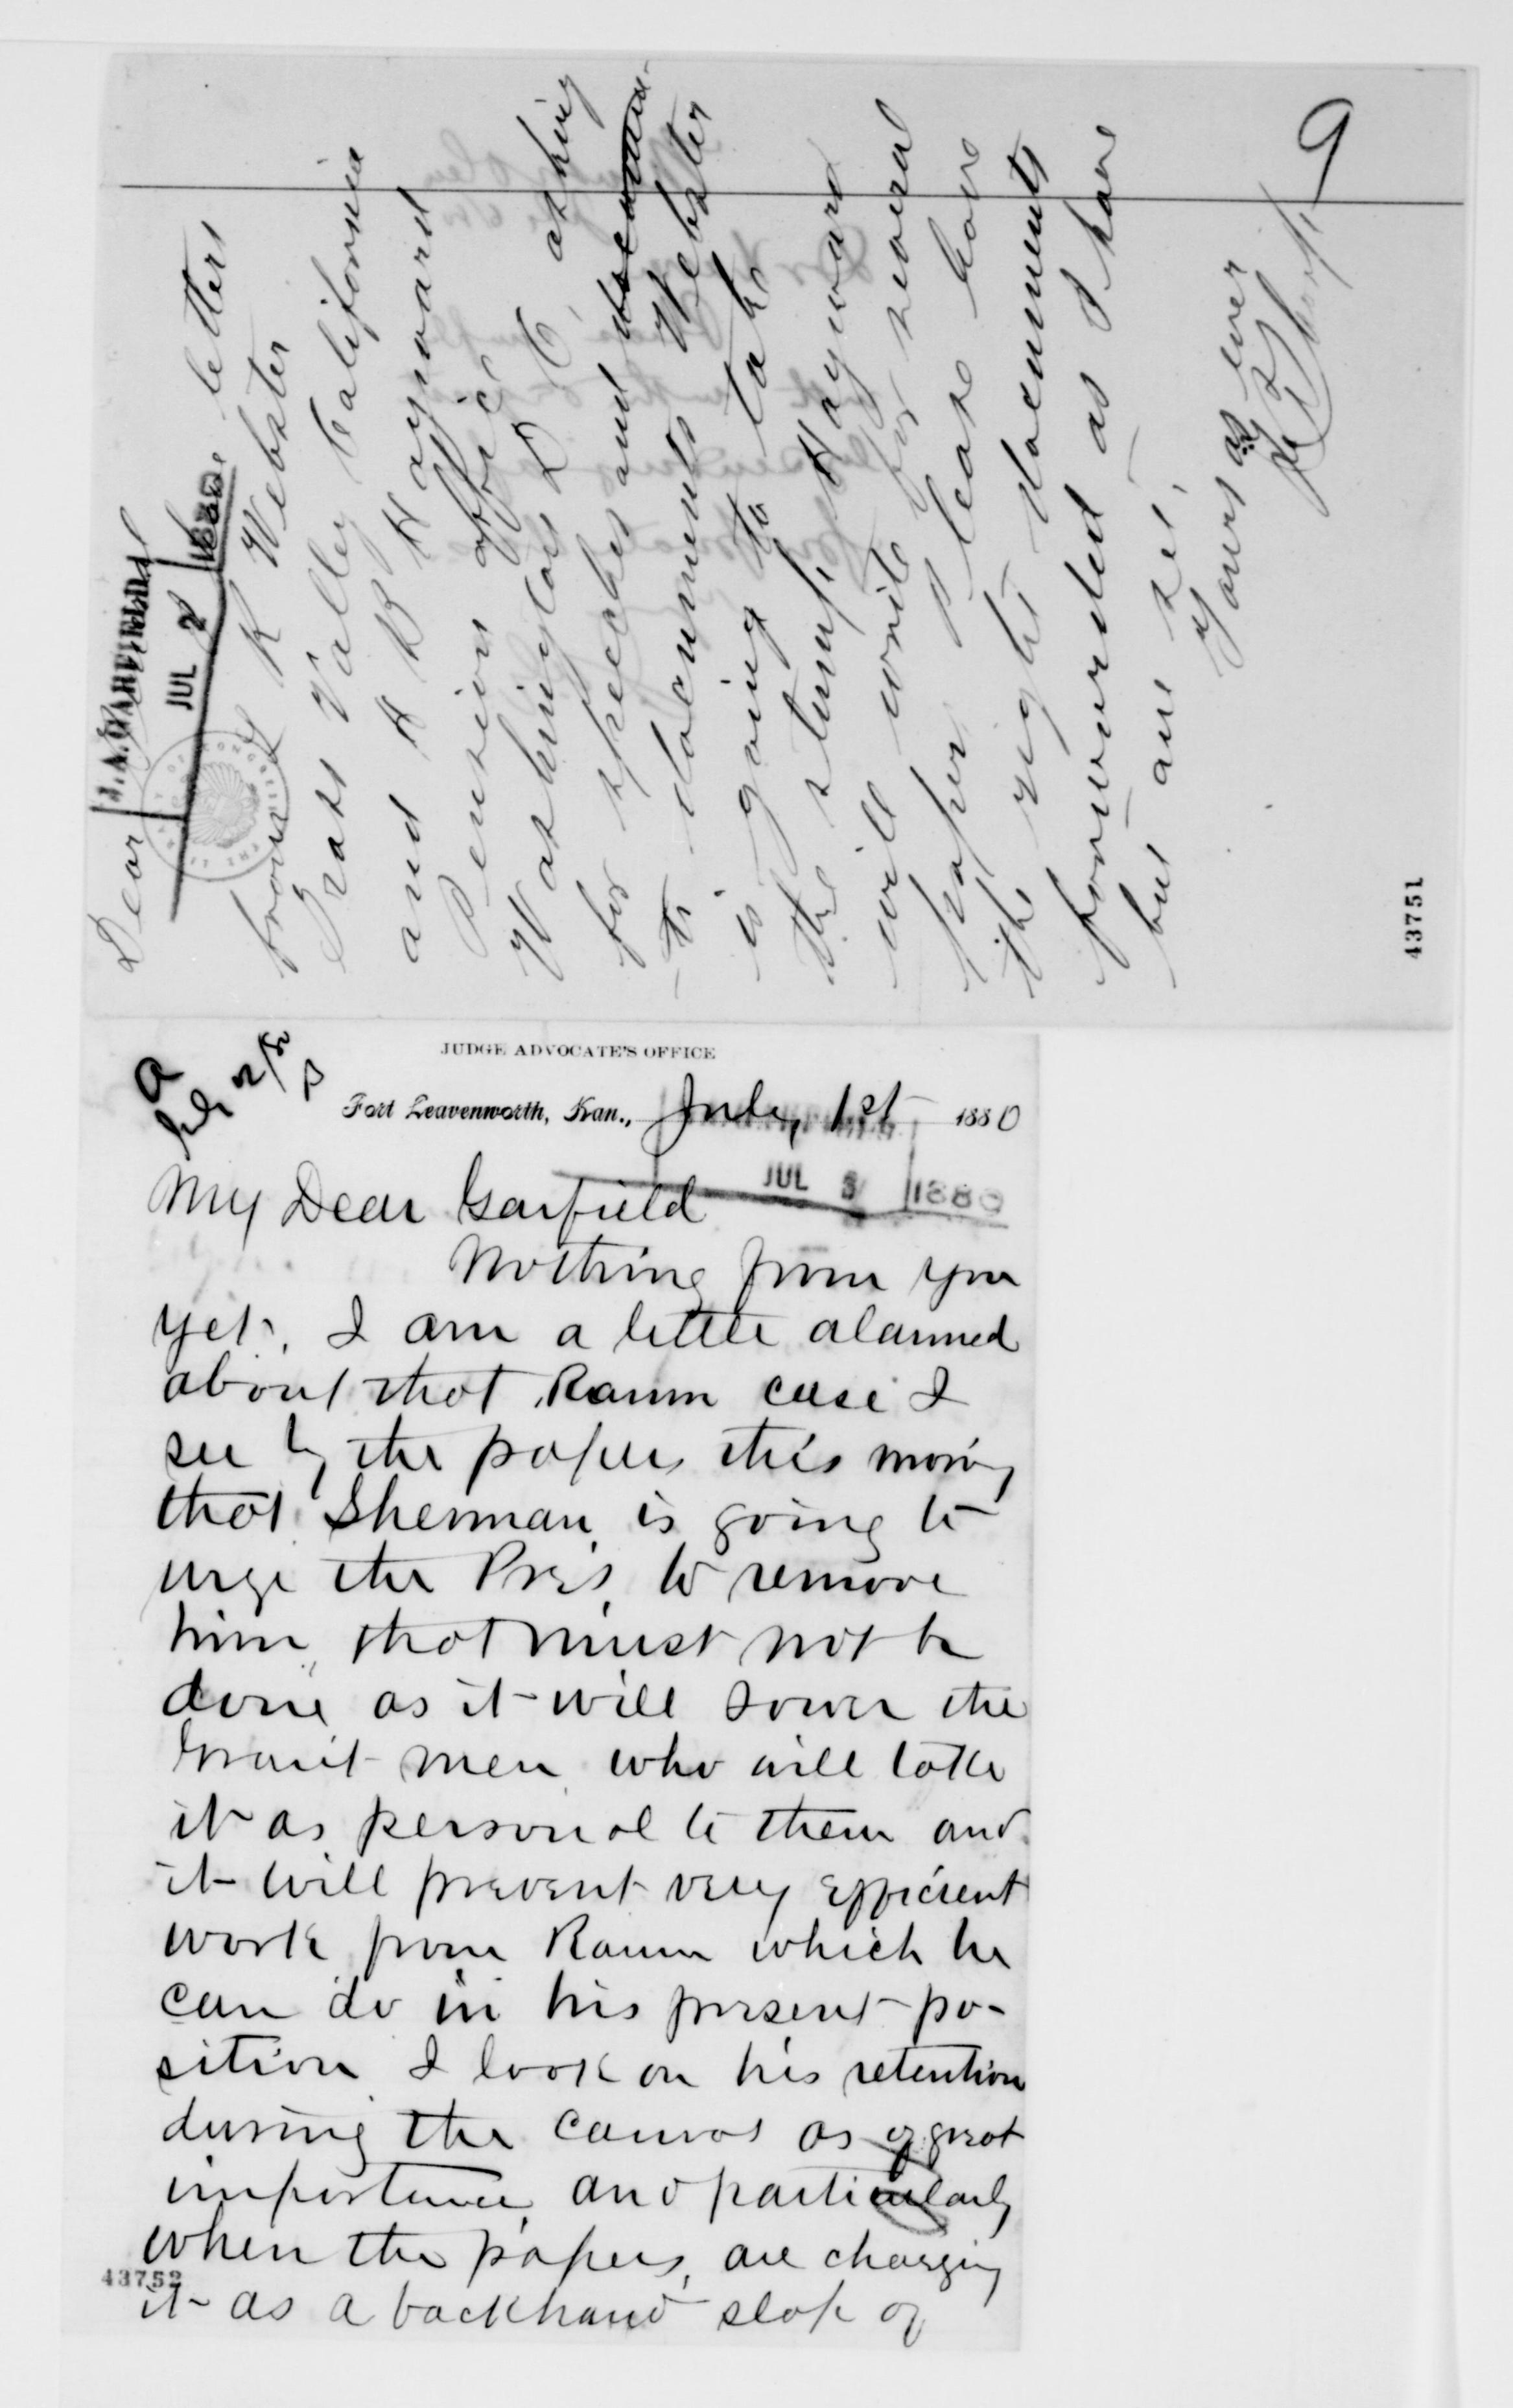 9
Dear General
J. A. GARFIELD
JUL 2 1880
letters
from K Webster
Grass Valley California
and H B Hayward
Pension office
Washington D C asking
for speeches and
documents Webster
is going to take
the stump. Hayward
will write for several
papers please have
the right documents
forwarded as I have
but one set,
Yours as ever
43751
a
JUDGE ADVOCATE'S OFFICE
Fort Leavenworth, Kan., July, 1st 1880
JUL 3 1880
My Dear Garfield
Nothing from you
yet. I am a little alarmed
about that Raum case I
see by the papers this morning
that Sherman is going to
urge the Pres. to remove
him, that must not be
done as it will sour the
Grant men who will take
it as personal to them and
it will prevent very efficient
work from Raum which he
can do in his present po-
sition I look on his retention
during the canvas as of great
importance, and particularly
when the papers, are charging
43752
it as a backhand slap of